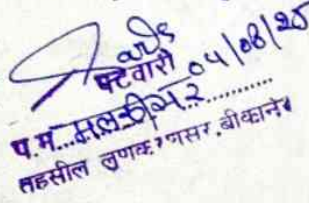 पटवारी 04/08/25
प.म....मलकीसर...........
तहसील लुणकरणसर, बीकानेर